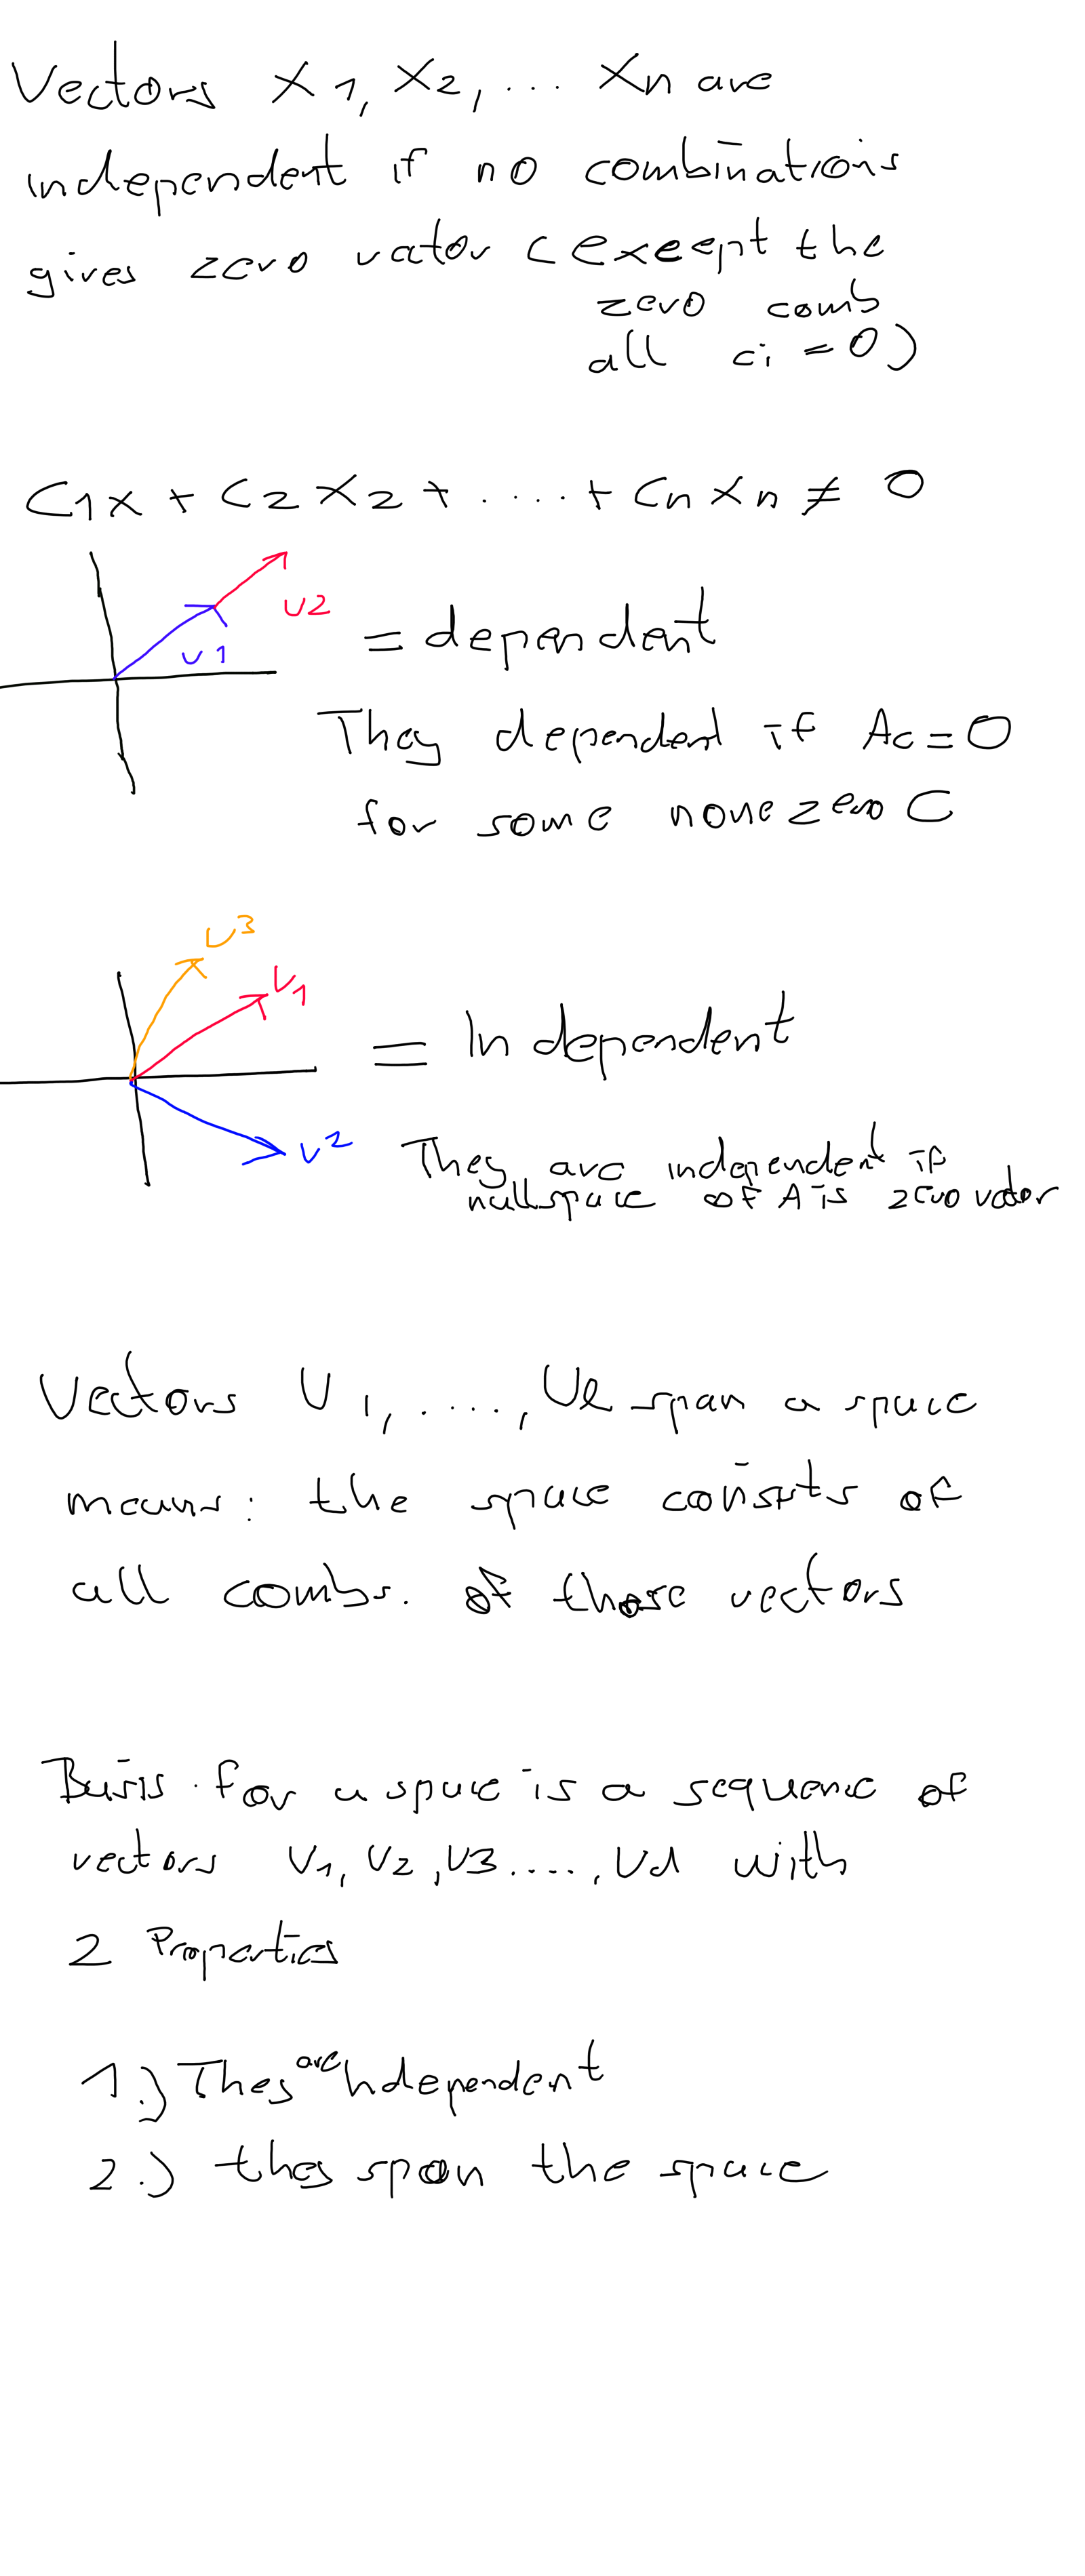 Vectors X1, X2, ... Xn are
independent if no combinations
gives zero vator (exeept the
zero comb
all ci = 0)
C1x + C2 X2 + ..... + Cn Xn ≠ 0
v2
v1
= dependent
They dependent if Ac = 0
for some nonezero C
v3
v1
= Independent
v2
They are independent if
nullspace of A is zero vator
Vectors V1, ....., Vl span a space
means: the space consists of
all combs. of those vectors
Basis for a space is a sequence of
vectors V1, V2, V3...., Vd with
2 Properties
1.) They are Independent
2.) they span the space